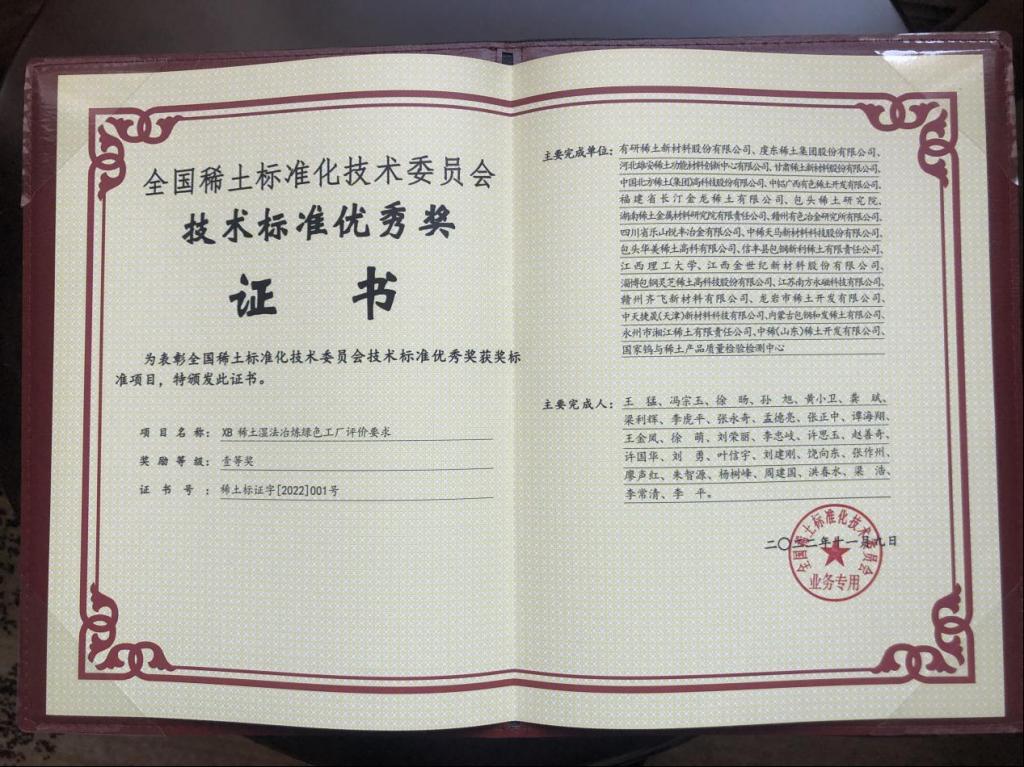 全国稀土标准化技术委员会
技术标准优秀奖
证 书
为表彰全国稀土标准化技术委员会技术标准优秀奖获奖标
准项目，特颁发此证书。
项目名称： XB 稀土湿法冶炼绿色工厂评价要求
奖励等级： 壹等奖
证 书 号 ： 稀土标证字[2022]001号
主要完成单位：有研稀土新材料股份有限公司、虔东稀土集团股份有限公司、
河北雄安稀土功能材料创新中心有限公司、甘肃稀土新材料股份有限公司、
中国北方稀土(集团)高科技股份有限公司、中铝广西有色稀土开发有限公司、
福建省长汀金龙稀土有限公司、包头稀土研究院、
湖南稀土金属材料研究院有限责任公司、赣州有色冶金研究所有限公司、
四川省乐山锐丰冶金有限公司、中稀天马新材料科技股份有限公司、
包头华美稀土高科有限公司、信丰县包钢新利稀土有限责任公司、
江西理工大学、江西金世纪新材料股份有限公司、
淄博包钢灵芝稀土高科技股份有限公司、江苏南方永磁科技有限公司、
赣州齐飞新材料有限公司、龙岩市稀土开发有限公司、
中天捷晟(天津)新材料科技有限公司、内蒙古包钢和发稀土有限公司、
永州市湘江稀土有限责任公司、中稀(山东)稀土开发有限公司、
国家钨与稀土产品质量检验检测中心
主要完成人：王 猛、冯宗玉、徐 旸、孙 旭、黄小卫、龚 斌、
梁利辉、李虎平、张永奇、孟德亮、张正中、谭海翔、
王金凤、徐 萌、刘荣丽、李忠岐、许思玉、赵善奇、
许国华、刘 勇、叶信宇、刘建刚、饶向东、张作州、
廖声红、朱智源、杨树峰、周建国、洪春水、梁 浩、
李常清、李 平。
二〇二二年十一月九日
全国稀土标准化技术委员会
业务专用